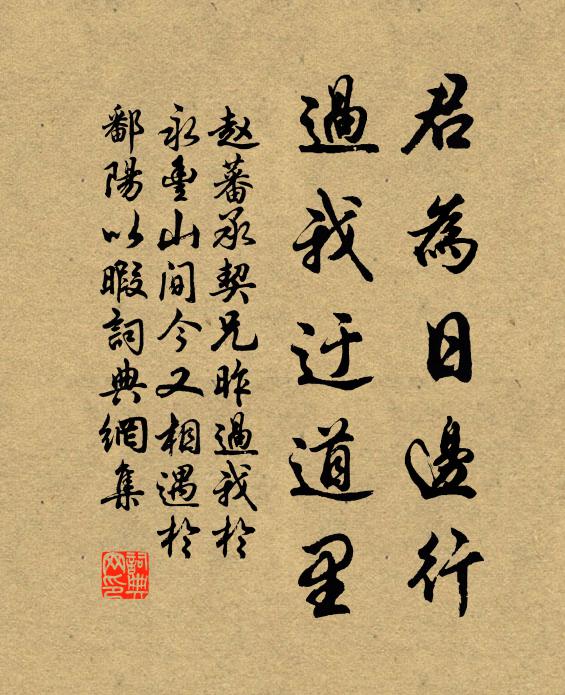 君為日邊行
過我迂道里
赵蕃承契兄昨過我於
永豐山间今又相遇於
鄱陽以暇詞典網集
詞典网印